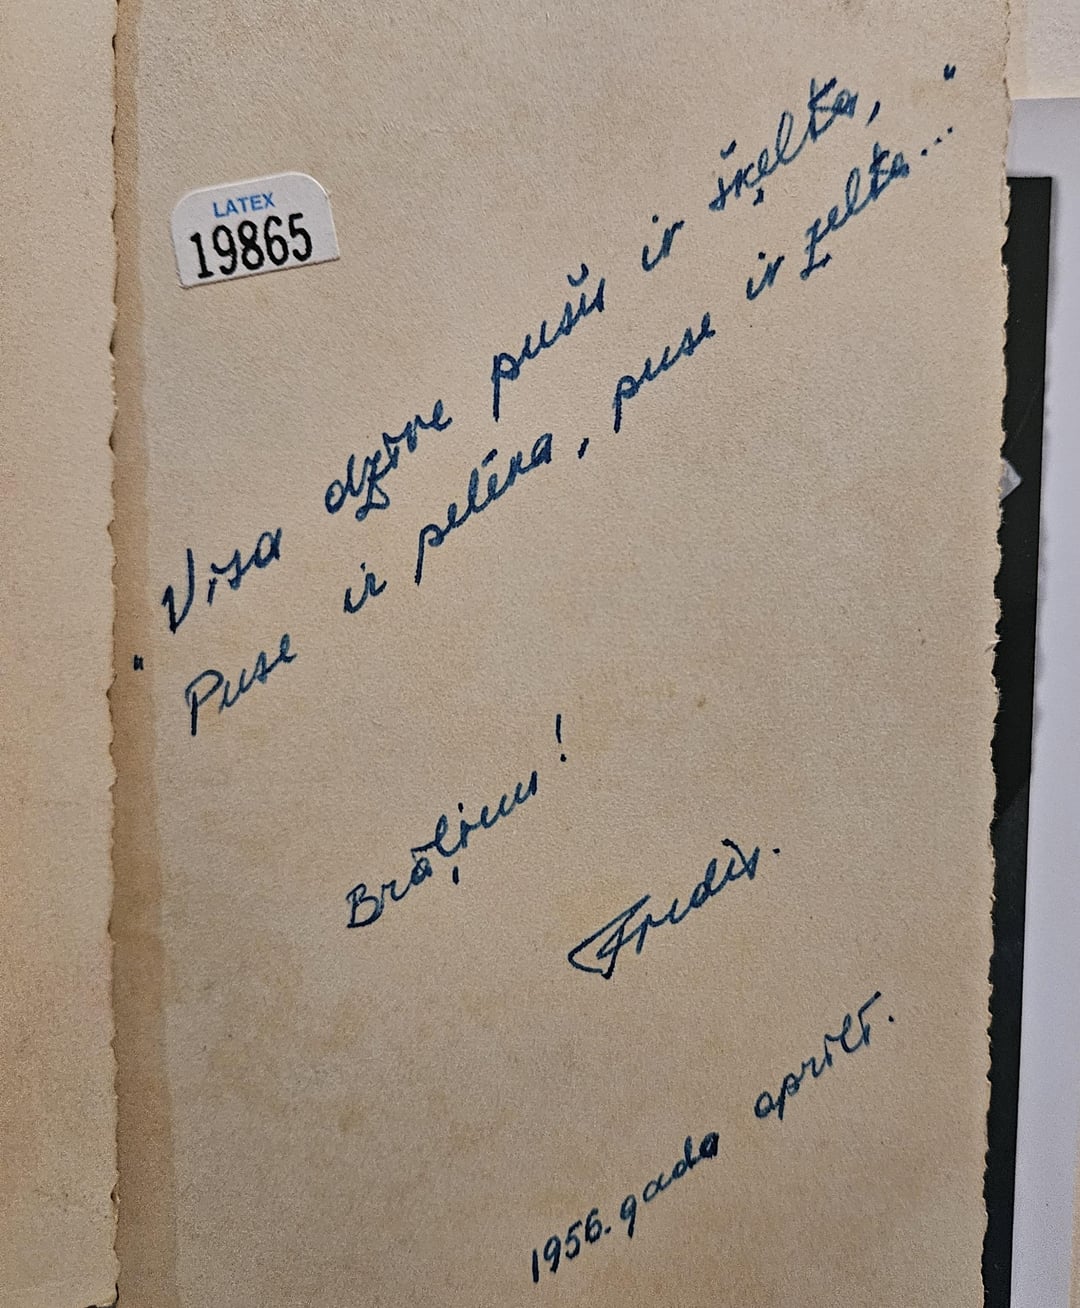 LATEX
19865
"Visa dzīve pušu ir šķelta,
Puse ir pelēka, puse ir zelta..."
Brālim!
Fredis.
1956. gada aprīlī.